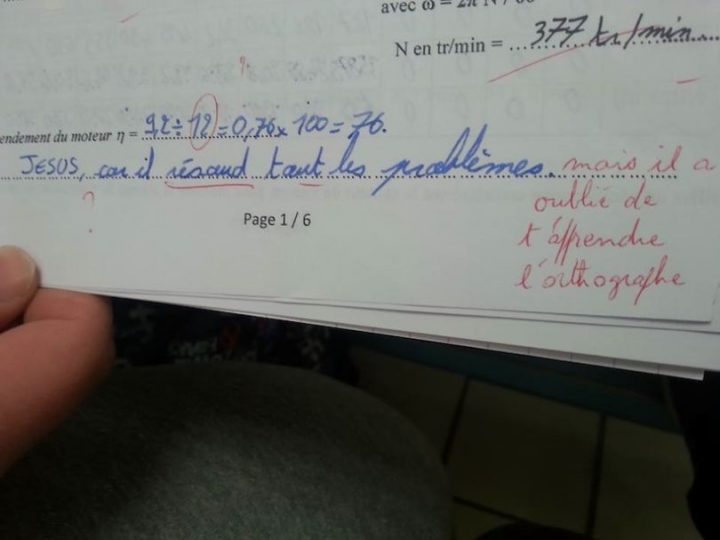 avec ω = 2π N / 60
N en tr/min = 377 tr/min
endement du moteur η = 9,2 ÷ 12 = 0,76 x 100 = 76.
JESUS, car il résaud taut les problèmes. mais il a
oublié de
t'affrendre
l'orthographe
?
Page 1 / 6